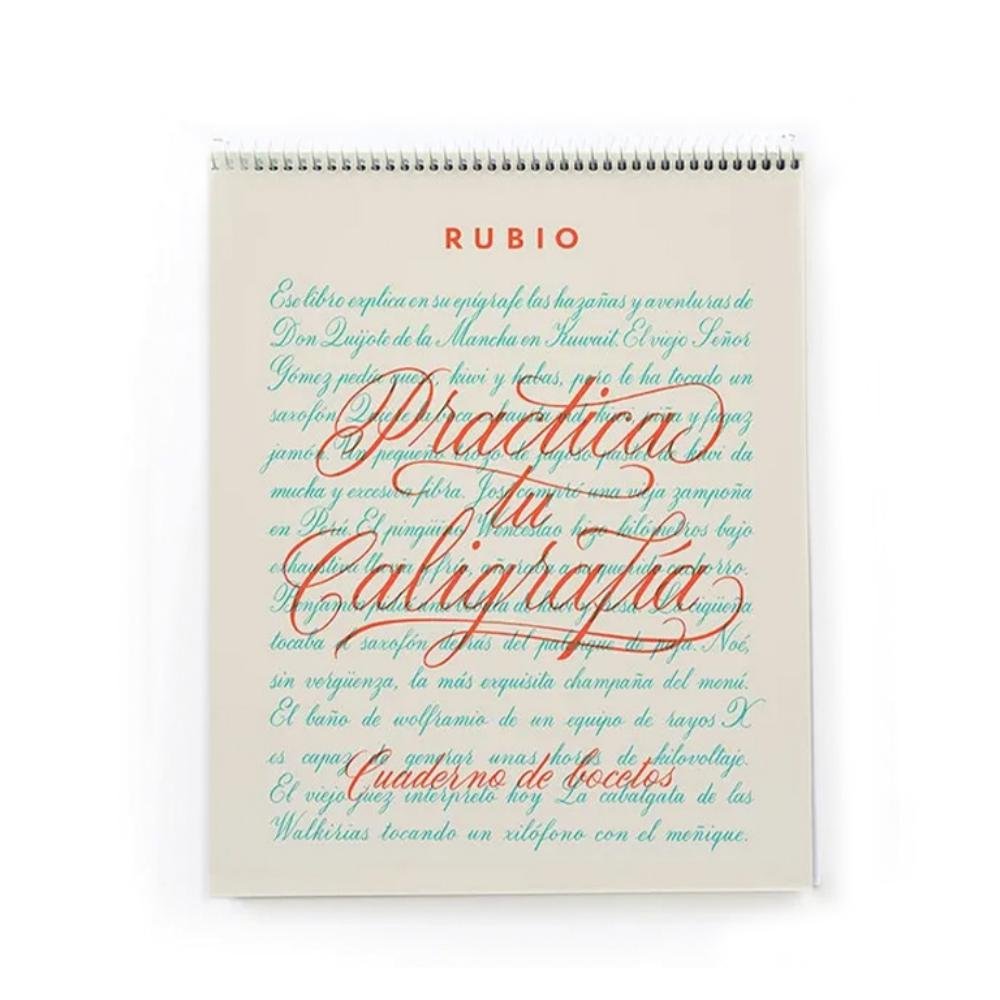 RUBIO
Ese libro explica en su epígrafe las hazañas y aventuras de
Don Quijote de la Mancha en Kuwait. El viejo Señor
Gómez pedía queso, kiwi y habas, pero le ha tocado un
saxofón
Practica
jamón. Un pequeño trozo de kiwi da
mucha y excesiva fibra. José compró una vieja zampoña
tu
en Perú. El pingüino Wenceslao hizo kilómetros bajo
exhaustiva lluvia y frío, añoraba a su querido cachorro.
Caligrafía
Benjamín pidió una La cigüeña
tocaba el saxofón detrás del palenque de paja. Noé,
sin vergüenza, la más exquisita champaña del menú.
El baño de wolframio de un equipo de rayos X
es capaz de generar unas horas de kilovoltaje.
Cuaderno de bocetos
El viejo juez interpretó hoy La cabalgata de las
Walkirias tocando un xilófono con el meñique.